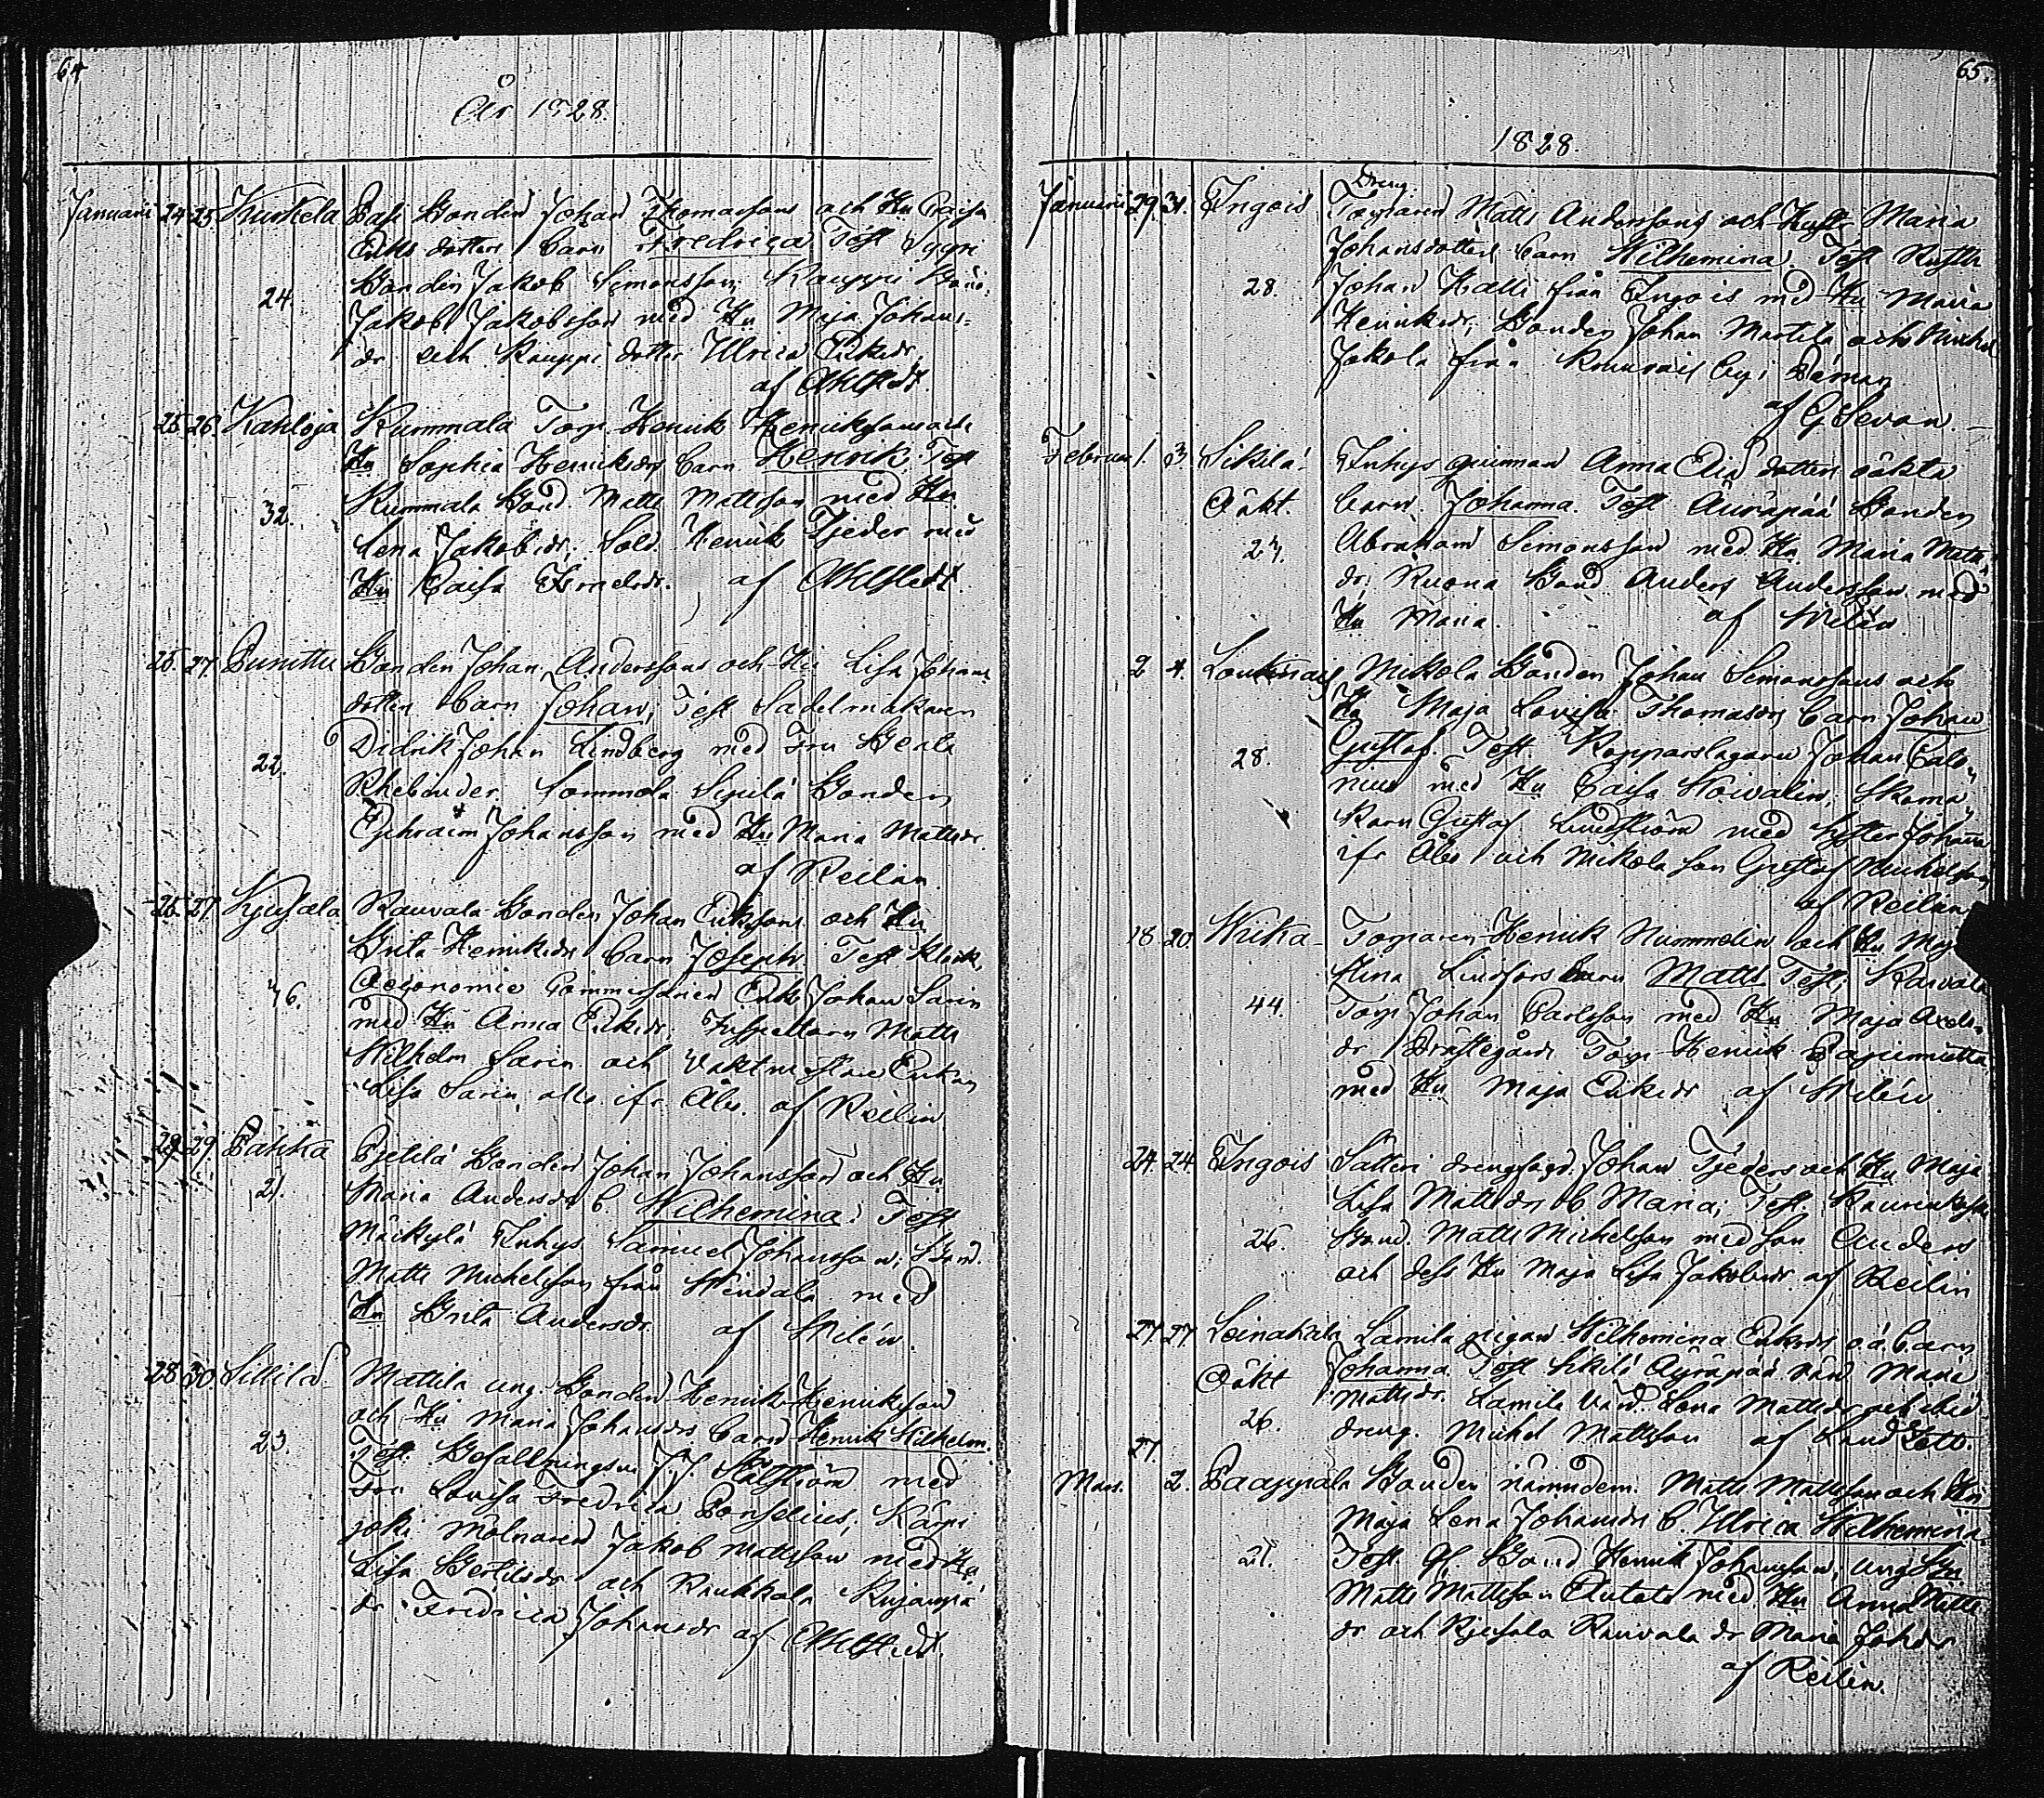 64
År 1828.
Januari 24 25 Kurkela Pasi Bonden Johan Thomassons och Hu Caisa
Eriks dotters barn Fredrica Test Sypri
Bonden Jakob Simonsson, Kauppi Bond:
24.
Jakob Jakobsson med Hu Maja Johans-
dr och Kauppi dotter Ulrica Eriksdr.
af Ahlstedt.
25 26. Kahloja Kummala Torp. Henrik Henrikssons och
Hu Sophia Henriksdrs barn Henrik. Test
Kummala Bond. Matts Mattsson med Hu
32.
Lena Jakobsdr; Sold. Henrik Tjeder med
Hu Caisa Israelsdr. af Ahlstedt.
25. 27. Purittu Bonden Johan Anderssons och Hu Lisa Johans
dotters barn Johan; Test Sadelmakaren
Didrik Johan Lindberg med Fru Beata
22.
Rhebinder Sommola Sipilä Bonden
Ephraim Johansson med Hu Maria Mattsdr.
af Reilin.
25. 27. Kjusala Rauvala Bonden Johan Erikssons och Hu
Brita Henriksdrs barn Joseph. Test Klock.
Oeconomie Commissarien Erik Johan Sarin
46.
med Hu Anna Eriksdr. Inspectorn Matts
Wilhelm Sarin och Vaktmästare Enkan
Lisa Sarin, alla ifr. Åbo. af Reilin
29 29. Pahka Pjelilä Bonden Johan Johanssons och Hu
21.
Maria Andersdrs b. Wilhemina: Test
Mäkylä Inhys Samuel Johansson; Bond.
Matts Michelsson från Wendala med
Hu Brita Andersdr. af Wilén.
28 30. Sillilä Mattila ung. Bonden Henrik Henrikssons
och Hu Maria Johansdrs barn Henrik Wilhelm.
23.
Test. Befallningsm J.J. Stålström med
Fru Lovisa Fredrica Ponselius; Kärpi
joki Mölnaren Jakob Mattsson med Hu
Lisa Bertilsdr och Raukkola
dr Fredrica Johansdr af Ahlstedt.
65.
1828.
Dreng.
Januari 29. 31. Ingois Torparen Matts Anderssons och Hust. Maria
Johansdotters barn Wilhemina. Test Rusth
28.
Johan Halli från Ingois med Hu Maria
Henriksdr; Bonden Johan Martila och Michel
Jakola från by i Pämar
af G Sevon
Februari 1. 3. Sikilä Inhys quinnan Anna Elias dotters oäkta
Oäkt.
barn Johanna. Test Äuräpää Bonden
27.
Abraham Simonsson med Hu Maria Matts
dr; Ruona Bond Anders Andersson med
Hu Maria. af Wilén.
2 4. Loukinais Mickola Bonden Johan Simonssons och
Hu Maja Lovisa Thomasdrs barn Johan
28.
Gustaf. Test. Kopparslagaren Johan Calo-
nius med Hu Caisa Skoma-
karn Gustaf Lindström med syster Johanna
ifr Åbo och Mickola son Gustaf Michelsson
af Reilin.
18. 20. Wiika Torparen Henrik Nummelin och Hu Maja
Stina Lindfors barn Matts Test; Karvala
44.
Torp. Johan Carlsson med Hu Maja Anders
dr. Torp. Henrik
med Hu Maja Eriksdr af Wilén.
24. 24 Ingois Säteri drengfogd. Johan Tjeders och Hu Maja
Lisa Mattsdrs b Maria; Test.
26.
Bond. Matts Michelsson med son Anders
och dess Hu Maja Lisa Jakobsdr af Reilin
27. 27 Leinakala Lamila pigan Wilhemina Eriksdrs o.ä. barn
Oäkt
Johanna Test Sikilä Äyräpää värd. Maria
26.
Mattsdr. Lamila Värd. Lena Mattsdr och ibid
dreng. Michel Mattsson af
27.
Mars. 2. Paappala Bonden nämndem. Matts Mattssons och Hu
Maja Lena Johansdrs b. Ulrica Wilhemina.
21.
Test. Gl. Bond Henrik Johansson; ung
Matts Mattsson Antola med Hu Anna Matts
dr och Kjusala Rauvala dr Maria Johdr
af Reilin.